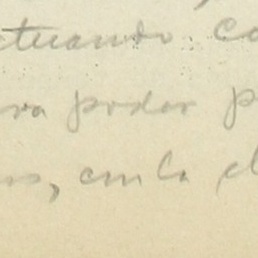 ctuando co
ra poder p
os, con la d